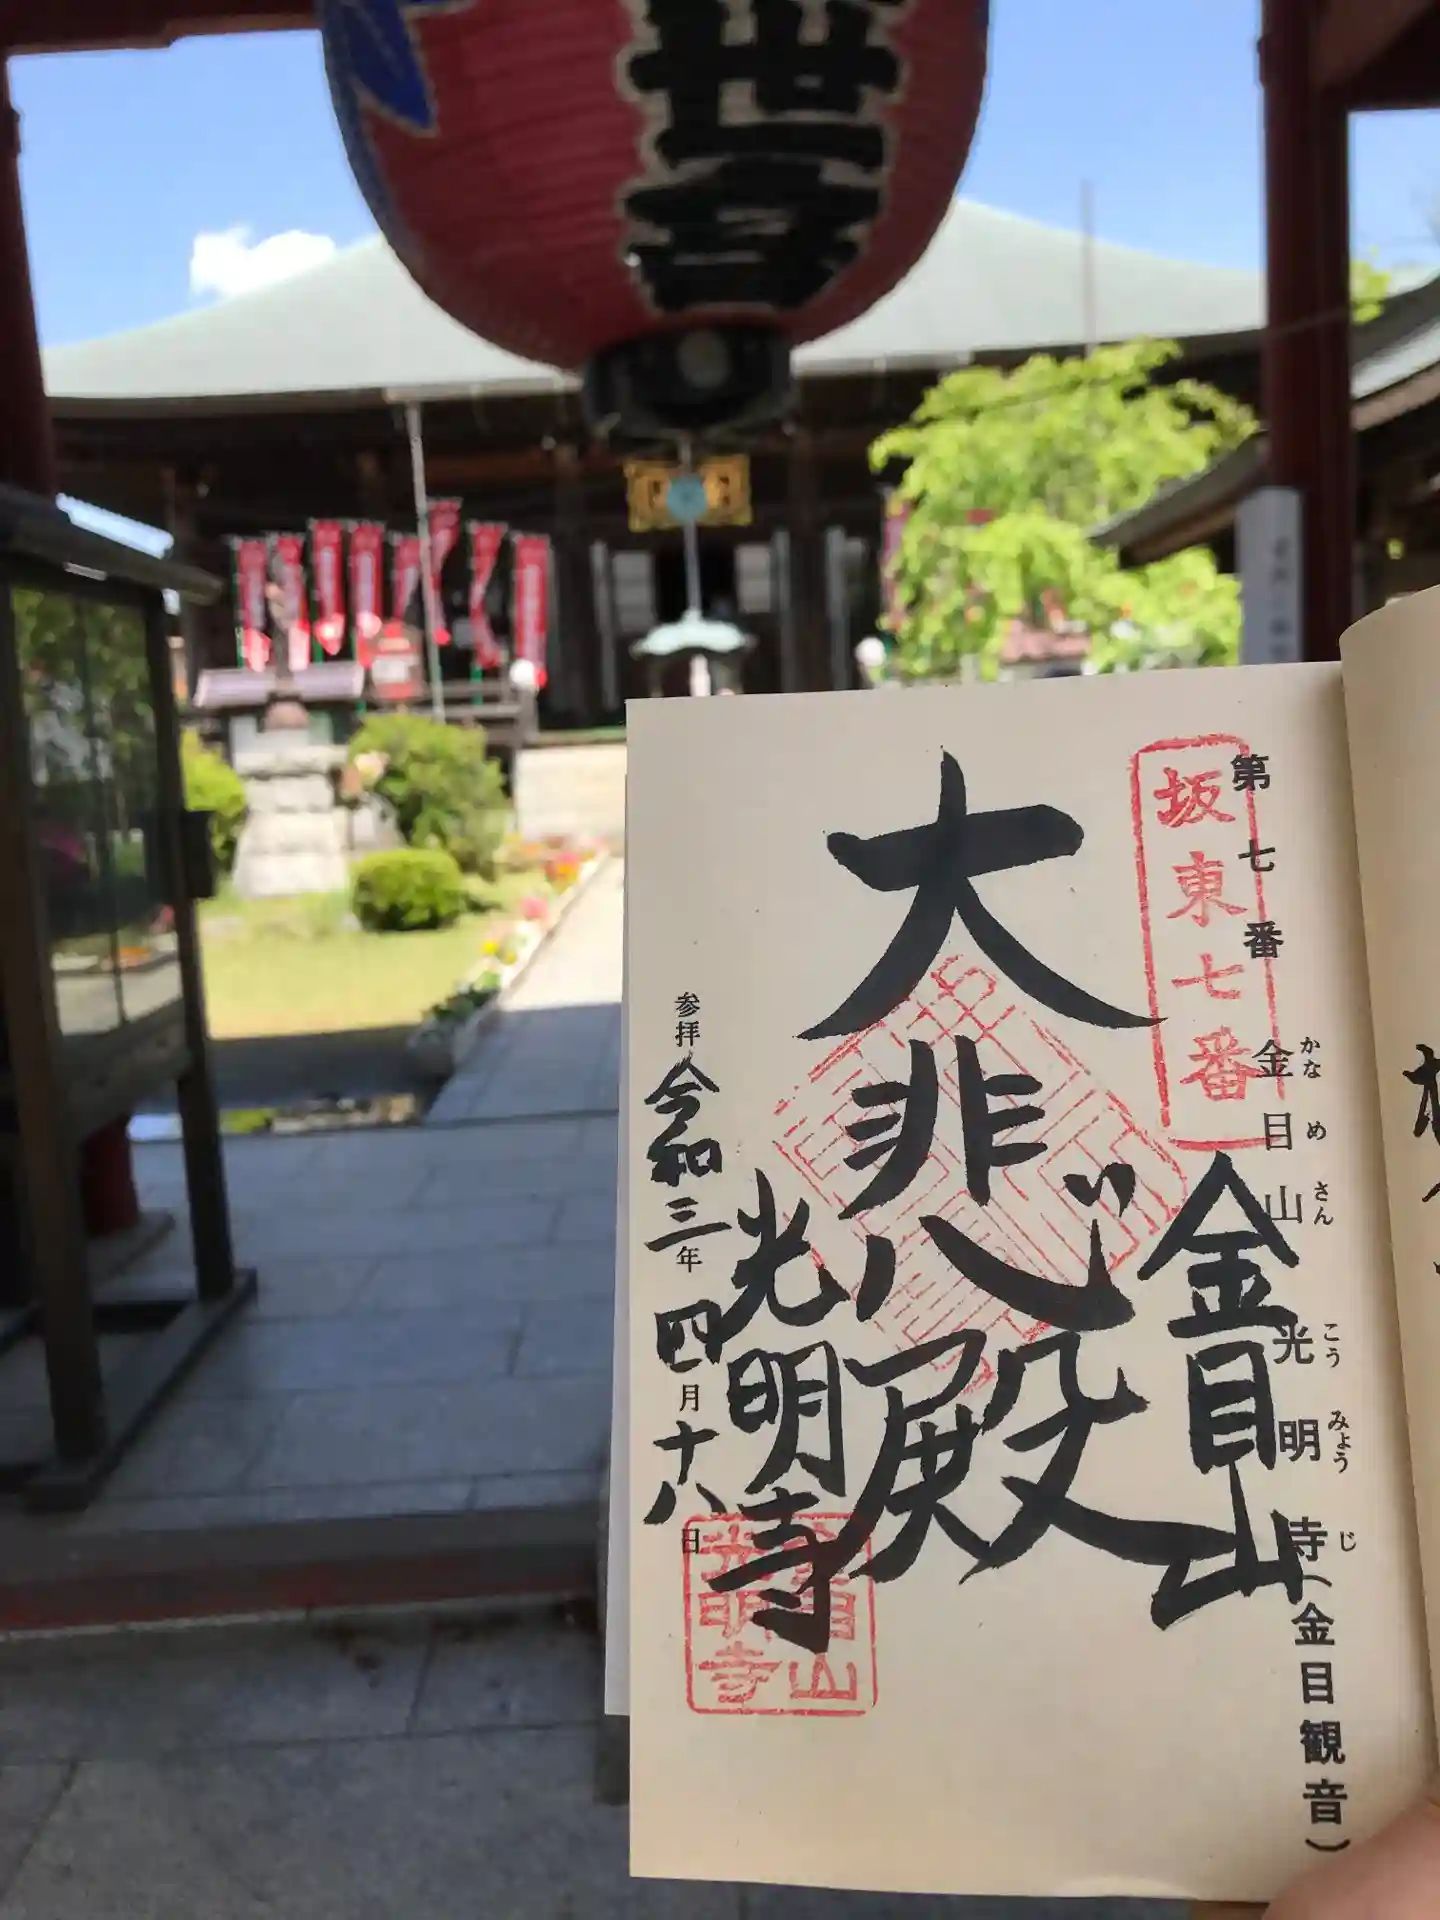 世音
坂東七番
第七番
金目山光明寺(金目観音)
かなめさん
こうみょうじ
金目山
大悲殿
光明寺
参拝令和三年四月十八日
金目山
光明寺